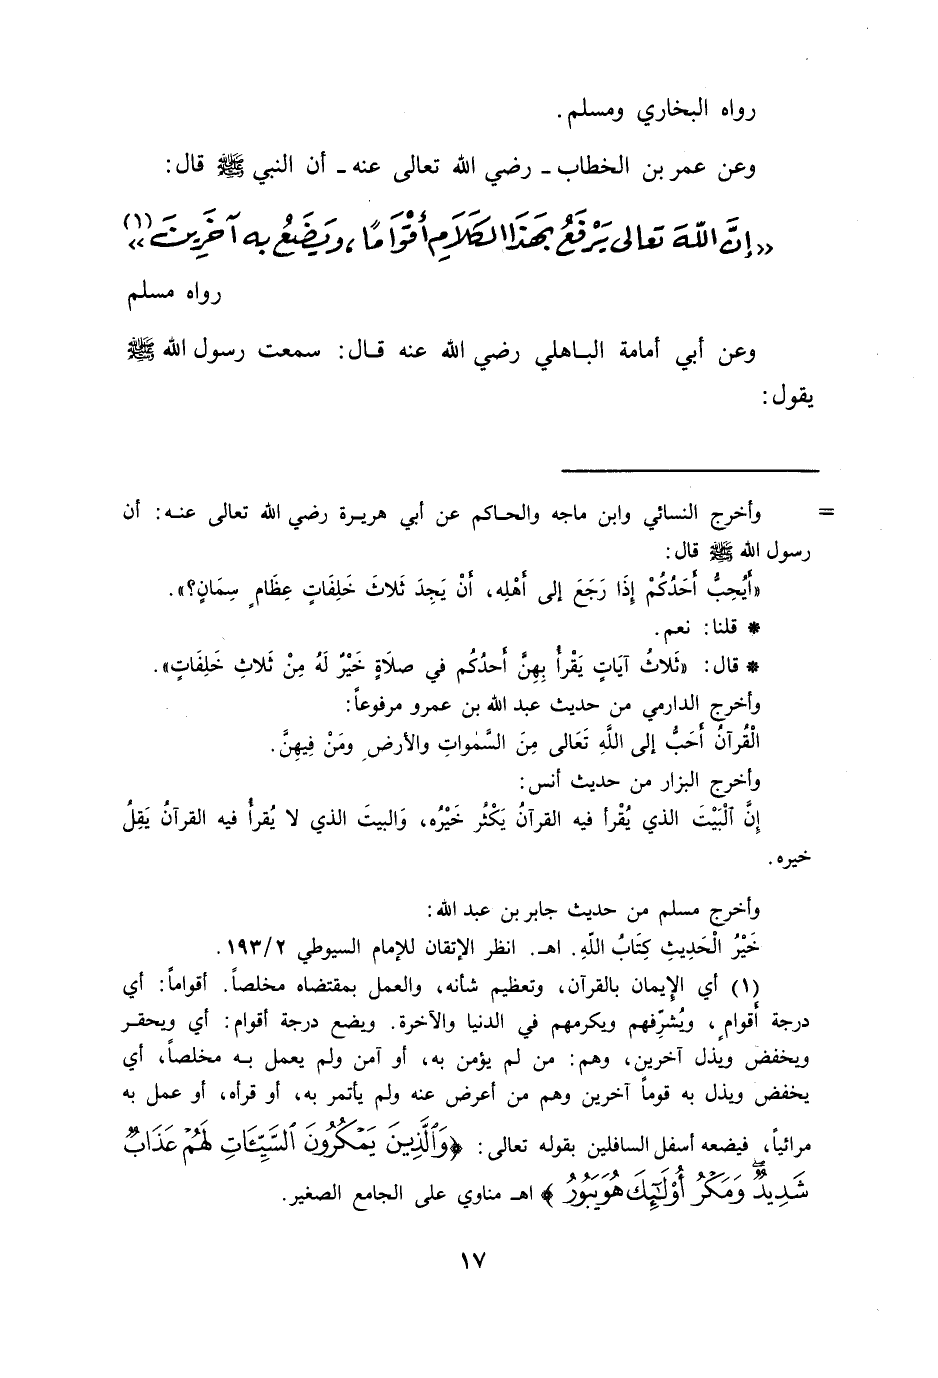 رواه البخاري ومسلم.
وعن عمر بن الخطاب ـ رضي الله تعالى عنه ـ أن النبي ﷺ قال:
«إنَّ اللهَ تعالى يَرْفَعُ بِهَذَا الكَلَامِ أقْوَامًا، ويَضَعُ به آخَرِينَ»(١)
رواه مسلم
وعن أبي أمامة الباهلي رضي الله عنه قال: سمعت رسول الله ﷺ
يقول:
= وأخرج النسائي وابن ماجه والحاكم عن أبي هريرة رضي الله تعالى عنه: أن
رسول الله ﷺ قال:
«أَيُحِبُّ أَحَدُكُمْ إِذَا رَجَعَ إلى أَهْلِه، أَنْ يَجِدَ ثَلاثَ خَلِفَاتٍ عِظَامٍ سِمَانٍ؟».
* قلنا: نعم.
* قال: «ثَلاثُ آيَاتٍ يَقْرأُ بِهِنَّ أَحدُكُم في صلَاةٍ خَيْرٌ لَهُ مِنْ ثَلاثِ خَلِفَاتٍ».
وأخرج الدارمي من حديث عبد الله بن عمرو مرفوعاً:
الْقُرآنُ أَحَبُّ إلى اللَّهِ تَعَالى مِنَ السَّمٰواتِ والأرضِ ومَنْ فِيهِنَّ.
وأخرج البزار من حديث أنس:
إِنَّ ٱلْبَيْتَ الذي يُقْرأ فيه القرآنُ يَكْثُر خَيْرُه، وَالبيتَ الذي لا يُقرأُ فيه القرآنُ يَقِلُّ
خيره.
وأخرج مسلم من حديث جابر بن عبد الله:
خَيْرُ الْحَدِيثِ كِتَابُ اللَّهِ. اهـ. انظر الإتقان للإمام السيوطي ١٩٣/٢.
(١) أي الإيمان بالقرآن، وتعظيم شأنه، والعمل بمقتضاه مخلصاً. أقواماً: أي
درجة أَقوامٍ، ويُشرِّفهم ويكرمهم في الدنيا والآخرة. ويضع درجة أقوام: أي ويحقر
ويخفض ويذل آخرين، وهم: من لم يؤمن به، أو آمن ولم يعمل به مخلصاً، أي
يخفض ويذل به قوماً آخرين وهم من أعرض عنه ولم يأتمر به، أو قرأه، أو عمل به
مرائياً، فيضعه أسفل السافلين بقوله تعالى: ﴿وَٱلَّذِينَ يَمْكُرُونَ ٱلسَّيِّئَاتِ لَهُمْ عَذَابٌ
شَدِيدٌ وَمَكْرُ أُوْلَـٰئِكَ هُوَ يَبُورُ﴾ اهـ مناوي على الجامع الصغير.
١٧